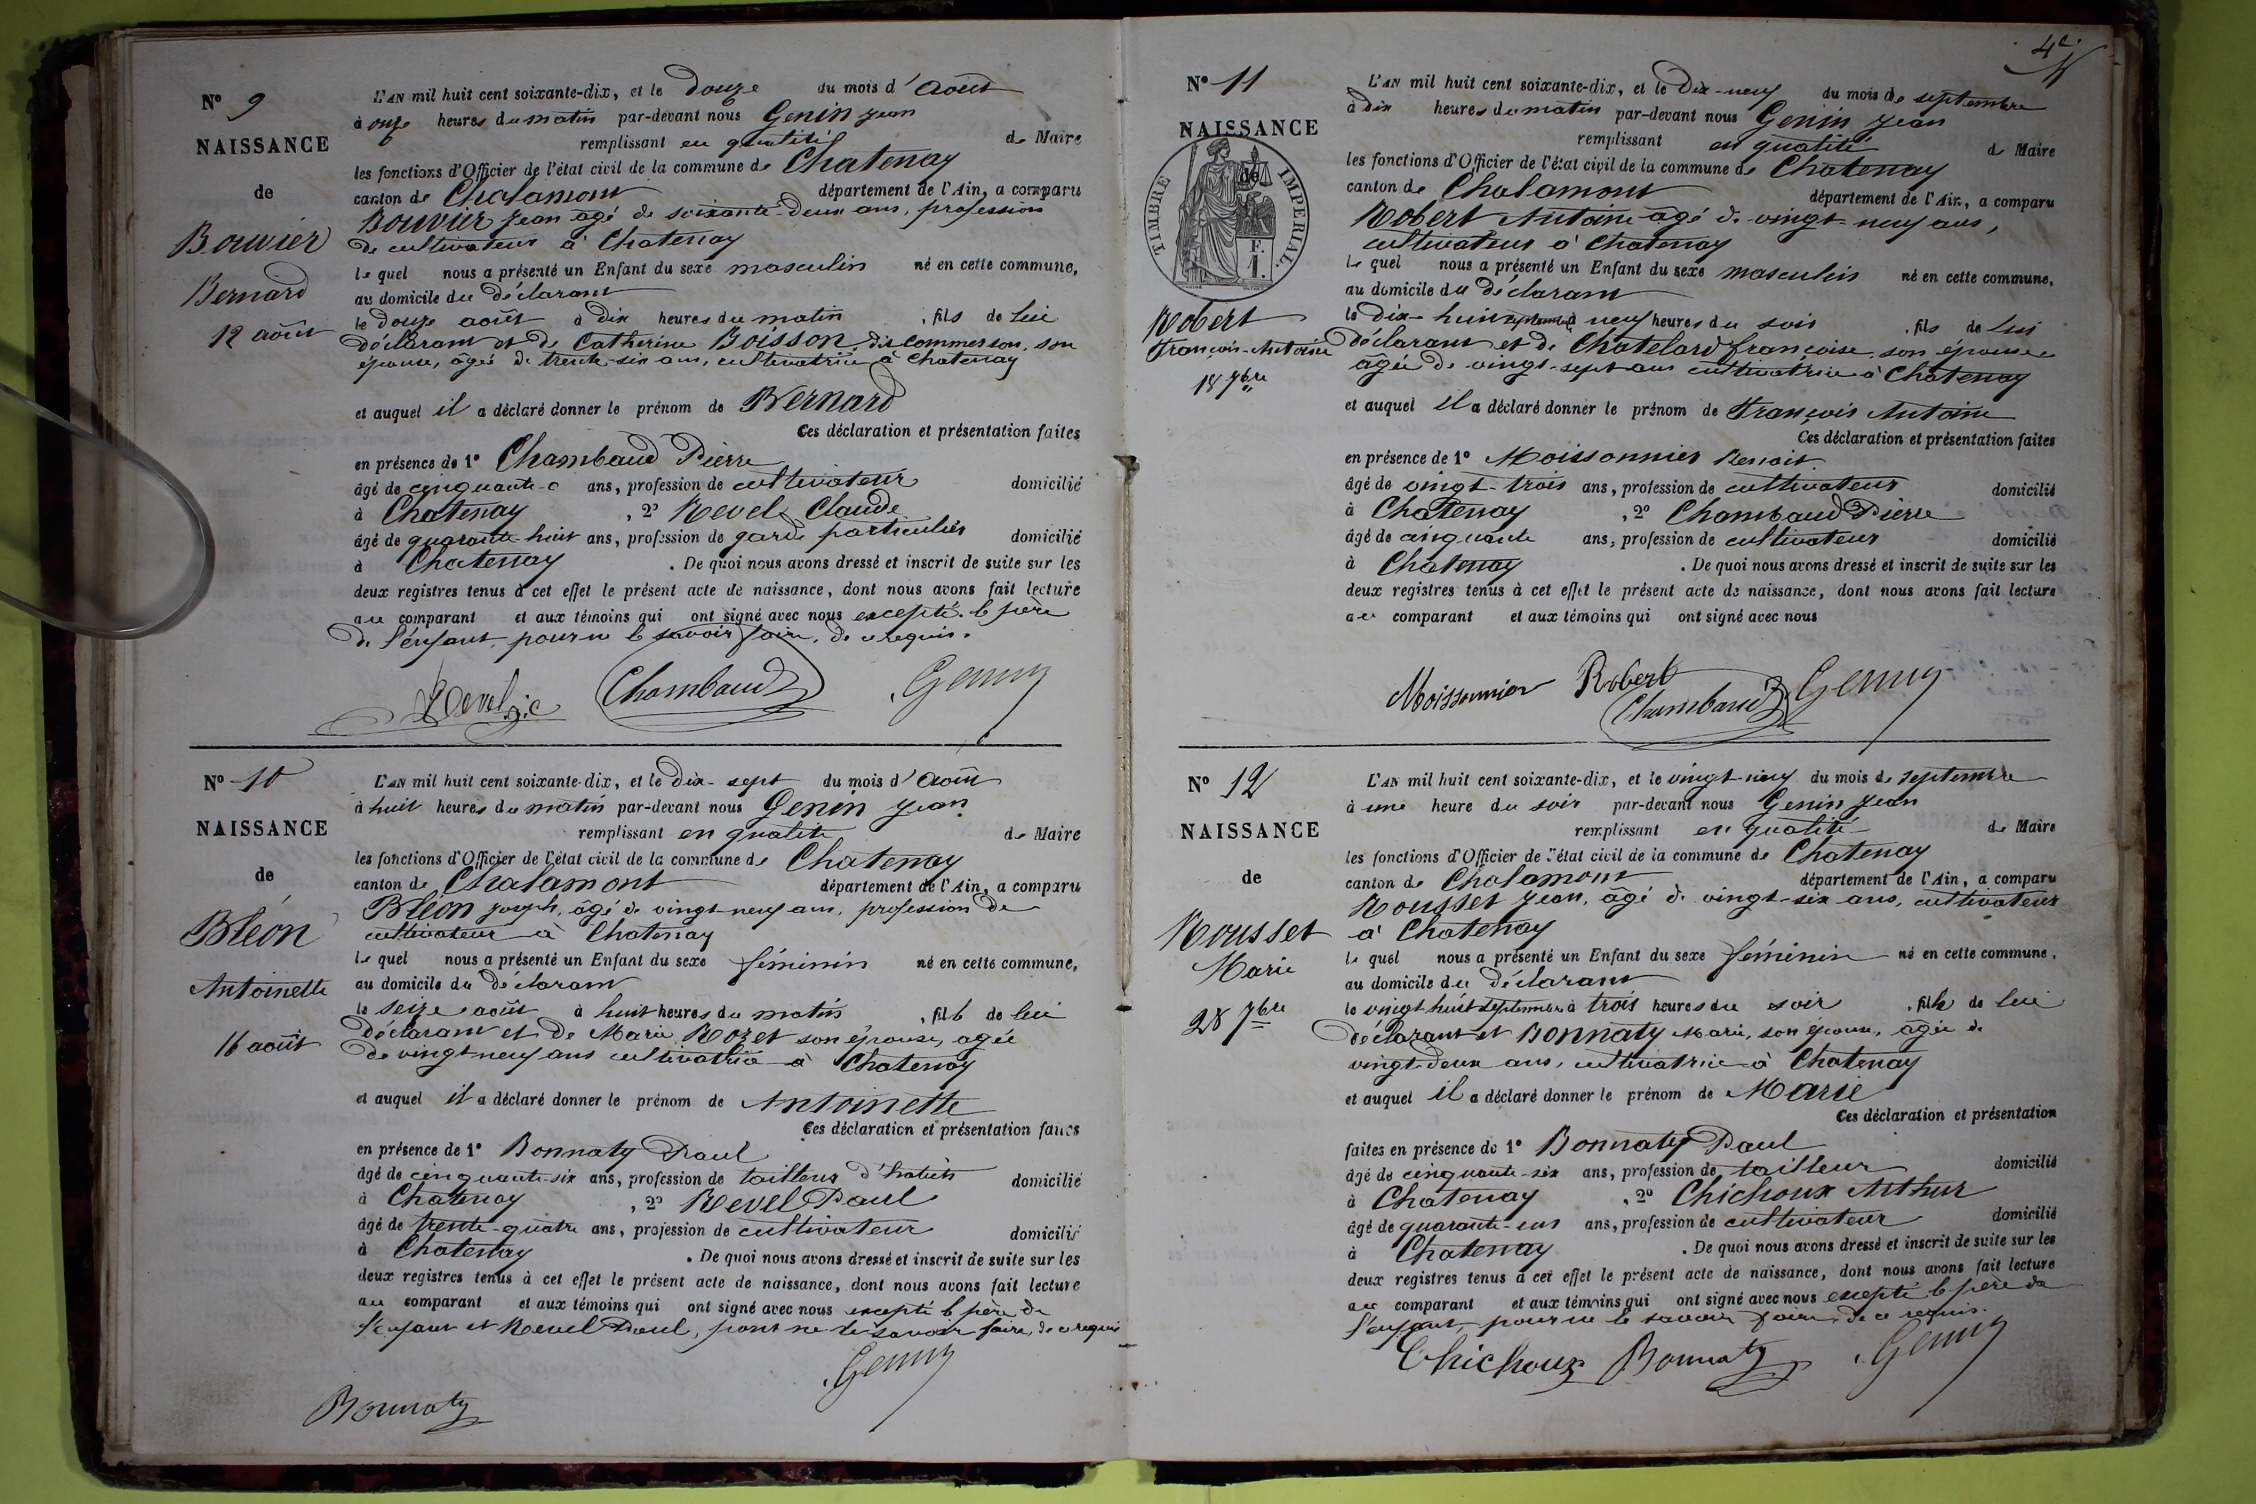 N° 9
NAISSANCE
de
Bouvier
Bernard
12 août
L'AN mil huit cent soixante-dix, et le douze du mois d'août
à onze heures du matin par-devant nous Genin Jean
remplissant en qualité de Maire
les fonctions d'Officier de l'état civil de la commune de Chatenay
canton de Chalamont département de l'Ain, a comparu
Bouvier Jean âgé de soixante-deux ans, profession
de cultivateur à Chatenay
le quel nous a présenté un Enfant du sexe masculin né en cette commune,
au domicile du déclarant
le douze août à dix heures du matin , fils de lui
déclarant et de Catherine Boisson dit Commerson, son
épouse, âgée de trente-six ans, cultivatrice à Chatenay
et auquel il a déclaré donner le prénom de Bernard
Ces déclaration et présentation faites
en présence de 1° Chambaud Pierre
âgé de cinquante ans, profession de cultivateur domicilié
à Chatenay , 2° Revel Claude
âgé de quarante-huit ans, profession de garde particulier domicilié
à Chatenay . De quoi nous avons dressé et inscrit de suite sur les
deux registres tenus à cet effet le présent acte de naissance, dont nous avons fait lecture
au comparant et aux témoins qui ont signé avec nous excepté le père
de l'enfant, pour ne le savoir faire, de ce requis.
Revel Chambaud Genin
N° 10
NAISSANCE
de
Bléon
Antoinette
16 août
L'AN mil huit cent soixante-dix, et le dix-sept du mois d'août
à huit heures du matin par-devant nous Genin Jean
remplissant en qualité de Maire
les fonctions d'Officier de l'état civil de la commune de Chatenay
canton de Chalamont département de l'Ain, a comparu
Bléon Joseph, âgé de vingt-neuf ans, profession de
cultivateur à Chatenay
le quel nous a présenté un Enfant du sexe féminin né en cette commune,
au domicile du déclarant
le seize août à huit heures du matin , fille de lui
déclarant et de Marie Rozet son épouse, agée
de vingt-neuf ans cultivatrice à Chatenay
et auquel il a déclaré donner le prénom de Antoinette
Ces déclaration et présentation faites
en présence de 1° Bonnaty Paul
âgé de cinquante-six ans, profession de tailleur d'habits domicilié
à Chatenay , 2° Revel Paul
âgé de trente-quatre ans, profession de cultivateur domicilié
à Chatenay . De quoi nous avons dressé et inscrit de suite sur les
deux registres tenus à cet effet le présent acte de naissance, dont nous avons fait lecture
au comparant et aux témoins qui ont signé avec nous excepté le père de
l'enfant et Revel Paul, pour ne le savoir faire, de ce requis
Genin
Bonnaty
4e
N° 11
NAISSANCE
de
TIMBRE IMPERIAL.
F.
1.
Robert
François-Antoine
18 7bre
L'AN mil huit cent soixante-dix, et le dix-neuf du mois de septembre
à dix heures du matin par-devant nous Genin Jean
remplissant en qualité de Maire
les fonctions d'Officier de l'état civil de la commune de Chatenay
canton de Chalamont département de l'Ain, a comparu
Robert Antoine âgé de vingt-neuf ans,
cultivateur à Chatenay
le quel nous a présenté un Enfant du sexe masculin né en cette commune,
au domicile du déclarant
le dix-huit septembre à neuf heures du soir , fils de lui
déclarant et de Chatelard françoise, son épouse
âgée de vingt-sept ans cultivatrice à Chatenay
et auquel il a déclaré donner le prénom de François Antoine
Ces déclaration et présentation faites
en présence de 1° Moissonnier Benoit
âgé de vingt-trois ans, profession de cultivateur domicilié
à Chatenay , 2° Chambaud Pierre
âgé de cinquante ans, profession de cultivateur domicilié
à Chatenay . De quoi nous avons dressé et inscrit de suite sur les
deux registres tenus à cet effet le présent acte de naissance, dont nous avons fait lecture
au comparant et aux témoins qui ont signé avec nous
Moissonnier Robert Chambaud Genin
N° 12
NAISSANCE
de
Rousset
Marie
28 7bre
L'AN mil huit cent soixante-dix, et le vingt-neuf du mois de septembre
à une heure du soir par-devant nous Genin Jean
remplissant en qualité de Maire
les fonctions d'Officier de l'état civil de la commune de Chatenay
canton de Chalamont département de l'Ain, a comparu
Rousset Jean, âgé de vingt-six ans, cultivateur
à Chatenay
le quel nous a présenté un Enfant du sexe féminin né en cette commune,
au domicile du déclarant
le vingt huit septembre à trois heures du soir , fille de lui
déclarant et Bonnaty Marie, son épouse, âgée de
vingt-deux ans, cultivatrice à Chatenay
et auquel il a déclaré donner le prénom de Marie
Ces déclaration et présentation
faites en présence de 1° Bonnaty Paul
âgé de cinquante-six ans, profession de tailleur domicilié
à Chatenay , 2° Chichoux Arthur
âgé de quarante-un ans, profession de cultivateur domicilié
à Chatenay . De quoi nous avons dressé et inscrit de suite sur les
deux registres tenus à cet effet le présent acte de naissance, dont nous avons fait lecture
au comparant et aux témoins qui ont signé avec nous excepté le père de
l'enfant, pour ne le savoir faire, de ce requis.
Chichoux Bonnaty Genin